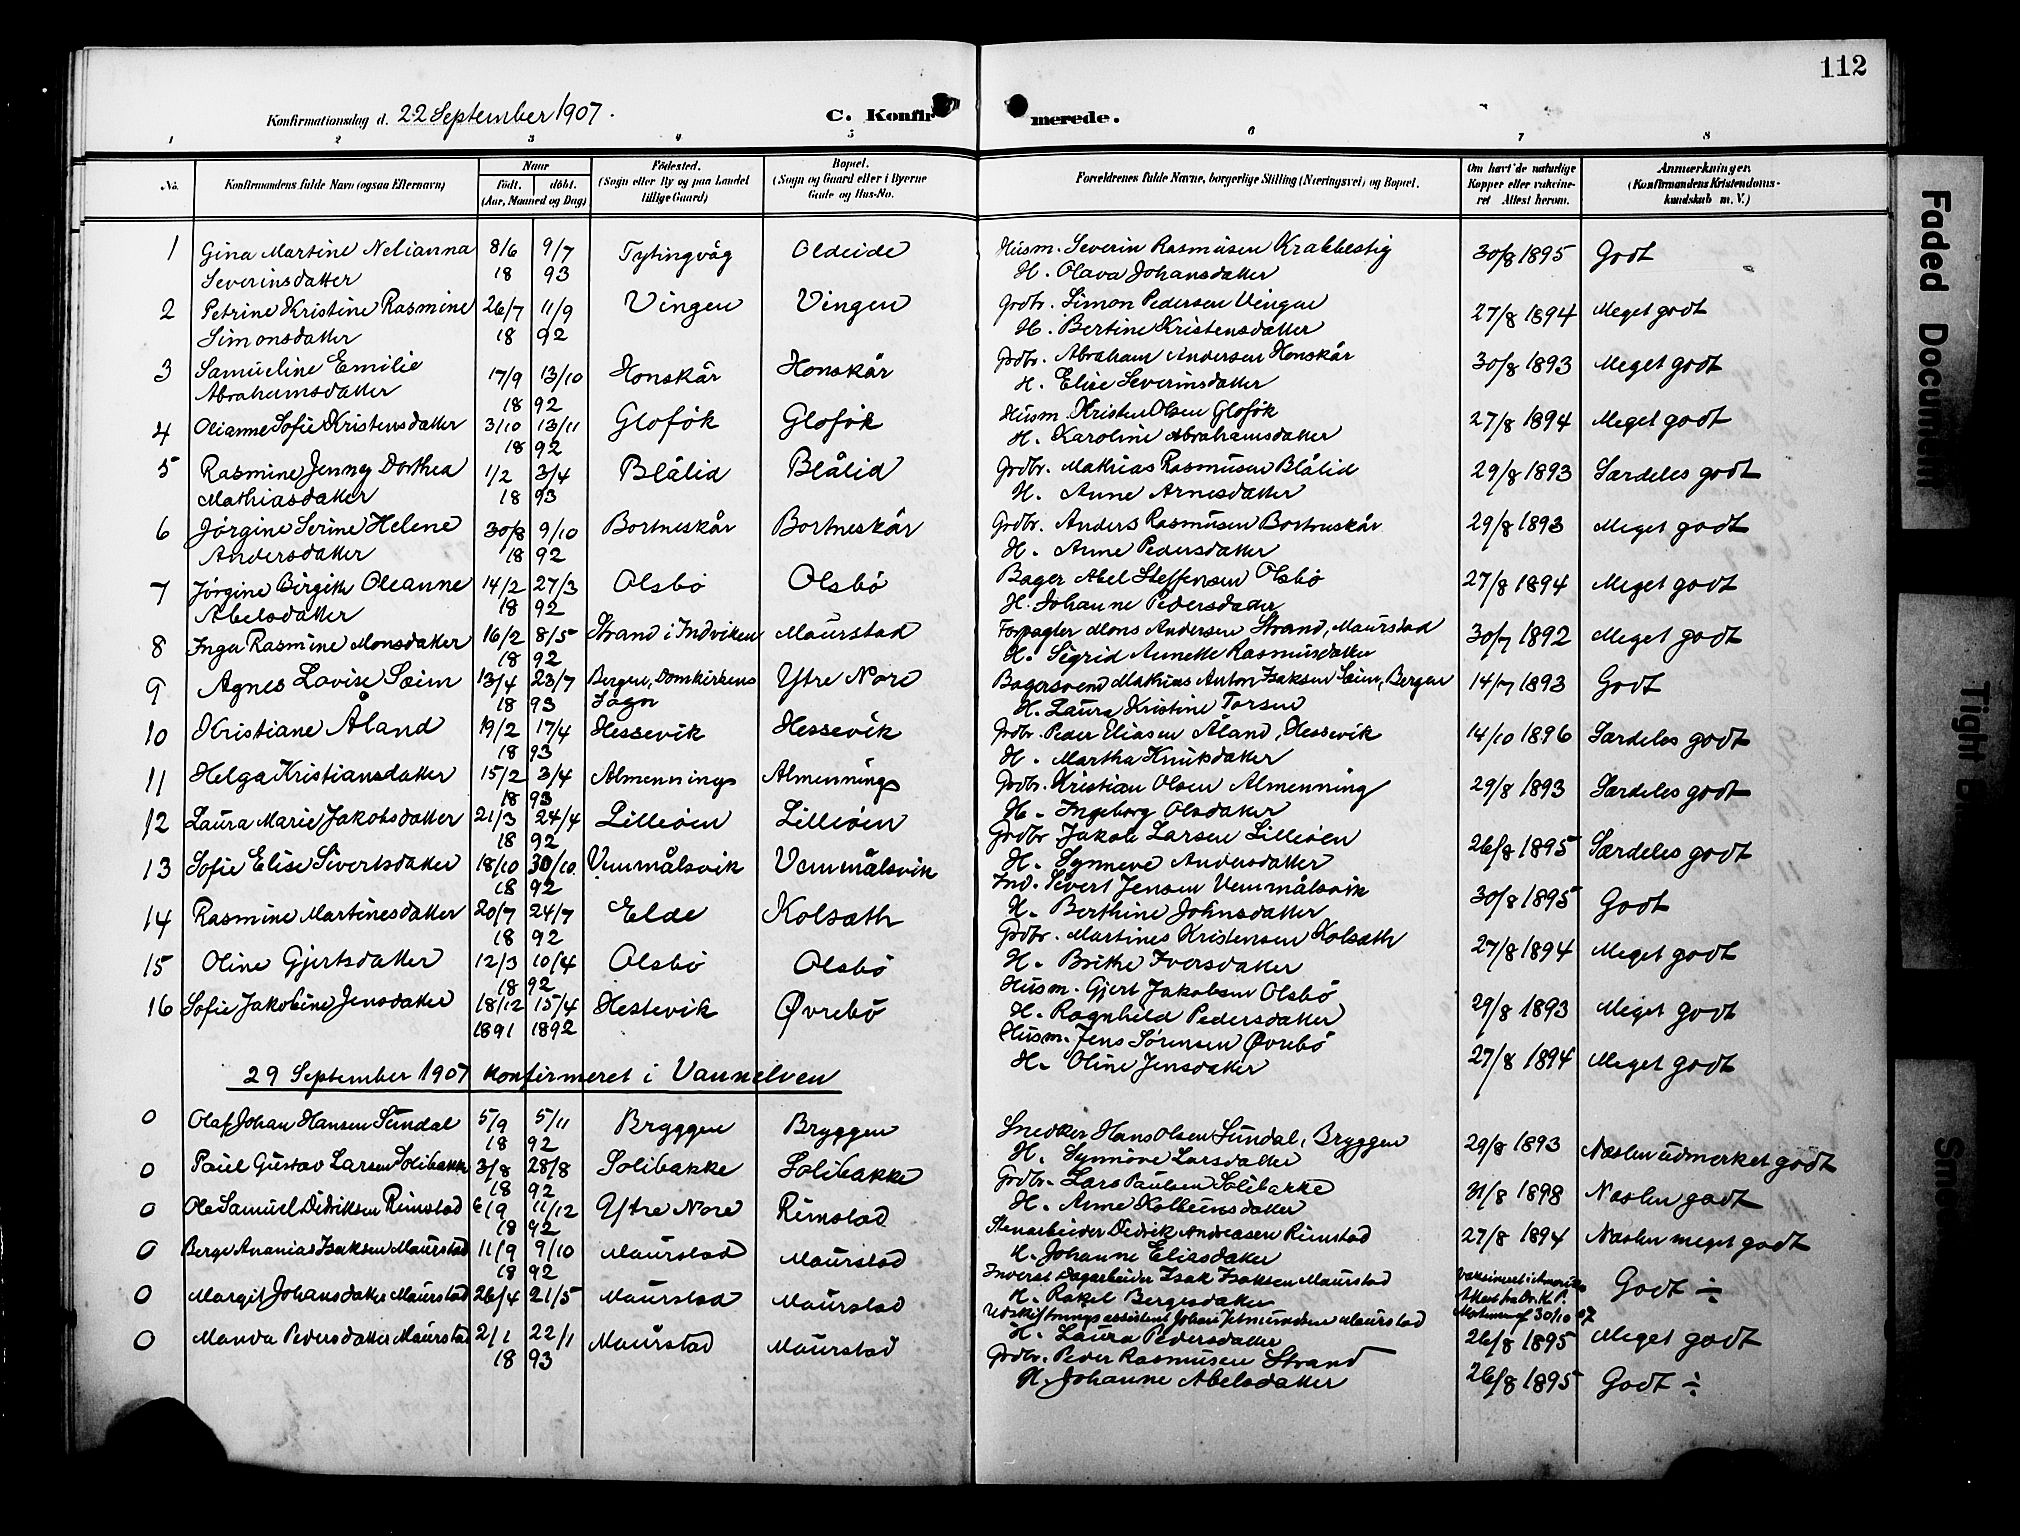 112
Konfirmationsdag d. 22 September 1907.
C. Konfirmerede.
1 2 3 4 5 6 7 8
No. Konfirmandens fulde Navn (ogsaa Efternavn) Naar født. døbt. (Aar, Maaned og Dag) Fødested. (Sogn eller By og paa Landet tillige Gaard) Bopæl. (Sogn og Gaard eller i Byerne Gade og Hus-No. Forældrenes fulde Navne, borgerlige Stilling (Næringsvei) og Bopæl. Om havt de naturlige Kopper eller vakcineret Attest herom. Anmærkninger. (Konfirmandens Kristendomskundskab m. V.)
1 Gina Martine Nelianna 8/6 9/7 Tytingvåg Oldeide Husm. Severin Rasmusen Krabbestig 30/8 1895 Godt
Severinsdatter 18 93 H. Olava Johansdatter
2 Petrine Kristine Rasmine 26/7 11/9 Vingen Vingen Grdbr. Simon Pedersen Vingen 27/8 1894 Meget godt
Simonsdatter 18 92 H. Bertine Kristensdatter
3 Samueline Emilie 17/9 13/10 Honskår Honskår Grdbr. Abraham Andersen Honskår 30/8 1893 Meget godt
Abrahamsdatter 18 92 H. Elise Severinsdatter
4 Olianne Sofie Kristensdatter 3/10 13/11 Gloføk Gloføk Husm. Kristen Olsen Gloføk 27/8 1894 Meget godt
18 92 H. Karoline Abrahamsdatter
5 Rasmine Jenny Dorthea 1/2 3/4 Blålid Blålid Grdbr. Mathias Rasmusen Blålid 29/8 1893 Særdeles godt
Mathiasdatter 18 93 H. Anne Arnesdatter
6 Jørgine Serine Helene 30/8 9/10 Bortneskår Bortneskår Grdbr. Anders Rasmusen Bortneskår 29/8 1893 Meget godt
Andersdatter 18 92 H. Anne Pedersdatter
7 Jørgine Birgith Oleanne 14/2 27/3 Olsbø Olsbø Bager Abel Steffensen Olsbø 27/8 1894 Meget godt
Abelsdatter 18 92 H. Johanne Pedersdatter
8 Inga Rasmine Monsdatter 16/2 8/5 Strand i Indviken Maurstad Forpagter Mons Andersen Strand, Maurstad 30/7 1892 Meget godt
18 92 H. Sigrid Annette Rasmusdatter
9 Agnes Lovise Sæim 13/4 23/7 Bergen, Domkirkens Ytre Nore Bagersvend Mathias Anton Isaksen Sæim, Bergen 14/7 1893 Godt
18 93 Sogn H. Laura Kristine Torsen
10 Kristiane Åland 19/2 17/4 Hessevik Hessevik Grdbr. Peder Eliasen Åland, Hessevik 14/10 1896 Særdeles godt
18 93 H. Martha Knutsdatter
11 Helga Kristiansdatter 15/2 3/4 Almennings Almennings Grdbr. Kristian Olsen Almenning 29/8 1893 Særdeles godt
18 93 H. Ingeborg Olsdatter
12 Laura Marie Jakobsdatter 21/3 24/4 Lilleøen Lilleøen Grdbr. Jakob Larsen Lilleøen 26/8 1895 Særdeles godt
18 92 H. Synneve Andersdatter
13 Sofie Elise Sivertsdatter 18/10 30/10 Vemmålsvik Vemmålsvik Ind. Sivert Jensen Vemmålsvik 30/8 1895 Godt
18 92 H. Berthine Johnsdatter
14 Rasmine Martinesdatter 20/7 24/7 Elde Kolsæth Grdbr. Martines Kristensen Kolsæth 27/8 1894 Meget godt
18 92 H. Brithe Iversdatter
15 Oline Gjertsdatter 12/3 10/4 Olsbø Olsbø Husm. Gjert Jakobsen Olsbø 29/8 1893 Meget godt
18 92 H. Ragnhild Pedersdatter
16 Sofie Jakobine Jensdatter 18/12 15/4 Hestevik Øvrebø Husm. Jens Sørensen Øvrebø 27/8 1894 Meget godt
1891 1892 H. Oline Jensdatter
29 September 1907 konfirmeret i Vannelven
0 Olaf Johan Hansen Sundal 5/9 5/11 Bryggen Bryggen Snedker Hans Olsen Sundal, Bryggen 29/8 1893 Næsten udmerket godt
18 92 H. Synnøve Larsdatter
0 Paul Gustav Larsen Solibakke 3/8 28/8 Solibakke Solibakke Grdbr. Lars Paulsen Solibakke 31/8 1898 Næsten godt
18 92 H. Anne Kolbeinsdatter
0 Ole Samuel Didriksen Rimstad 6/9 11/12 Ytre Nore Rimstad Stenarbeider Didrik Andreasen Rimstad 27/8 1894 Næsten meget godt
18 92 H. Johanne Eliasdatter
0 Berge Ananias Isaksen Maurstad 11/9 9/10 Maurstad Maurstad Inderst Dagarbeider Isak Isaksen Maurstad Godt ÷
18 92 H. Rakel Bergesdatter
0 Margit Johansdatter Maurstad 26/4 21/5 Maurstad Maurstad Udskiftningsassistent Johan Maurstad 26/8 1895 Meget godt
H. Laura Pedersdatter
0 Manda Pedersdatter Maurstad 2/1 22/1 Maurstad Maurstad Grdbr. Peder Rasmusen Strand 26/8 1895 Godt ÷
18 93 H. Johanne Abelsdatter
Faded Document
Tight